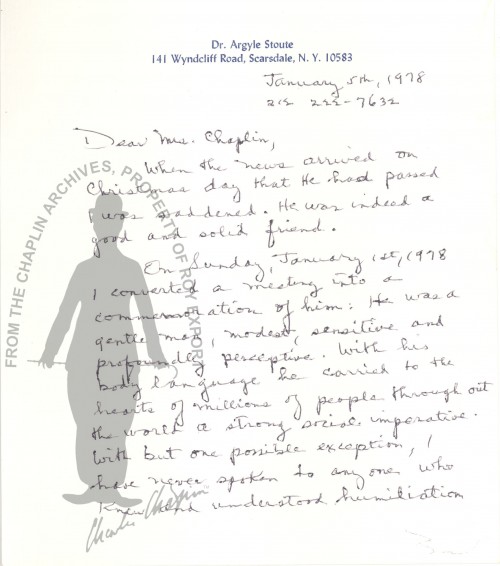 Dr. Argyle Stoute
141 Wyndcliff Road, Scarsdale, N. Y. 10583
January 5th, 1978
212 222-7632
Dear Mrs. Chaplin,
When the news arrived on
Christmas day that He had passed
I was saddened. He was indeed a
good and solid friend.
On Sunday, January 1st, 1978
I converted a meeting into a
commemoration of him: He was a
gentle man, modest, sensitive and
profoundly perceptive. With his
body language he carried to the
hearts of millions of people through out
the world a strong social imperative.
With but one possible exception, I
have never spoken to any one who
Knew and understood humiliation
FROM THE CHAPLIN ARCHIVES, PROPERTY OF ROY EXPORT
Charlie Chaplin